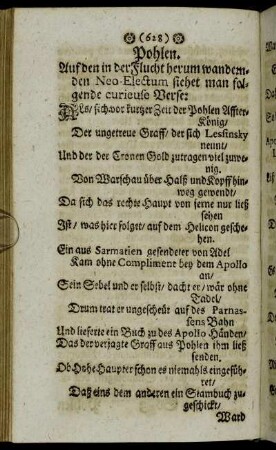 (628)
Pohlen.
Auf den in der Flucht herum wandern-
den Neo-Electum siehet man fol-
gende curieuse Verse:
ALs / sich vor kurtzer Zeit der Pohlen Affter-
König /
Der ungetreue Graff / der sich Lesfinsky
nennt /
Und der der Cronen Gold zutragen viel zuwe-
nig.
Von Warschau über Halß und Kopff hin-
weg gewendt /
Da sich das rechte Haupt von ferne nur ließ
sehen
Ist / was hier folget / auf dem Helicon gesche-
hen.
Ein aus Sarmatien gesendeter von Adel
Kam ohne Compliment bey dem Apollo
an /
Sein Sebel und er selbst / dacht er / wär ohne
Tadel /
Drum trat er ungescheut auf des Parnas-
sens Bahn
Und lieferte ein Buch zu des Apollo Händen /
Das der verjagte Graff aus Pohlen ihm ließ
senden.
Ob Hohe Häupter schon es niemahls eingefüh-
ret /
Daß eins dem anderen ein Stambuch zu-
geschickt /
Ward